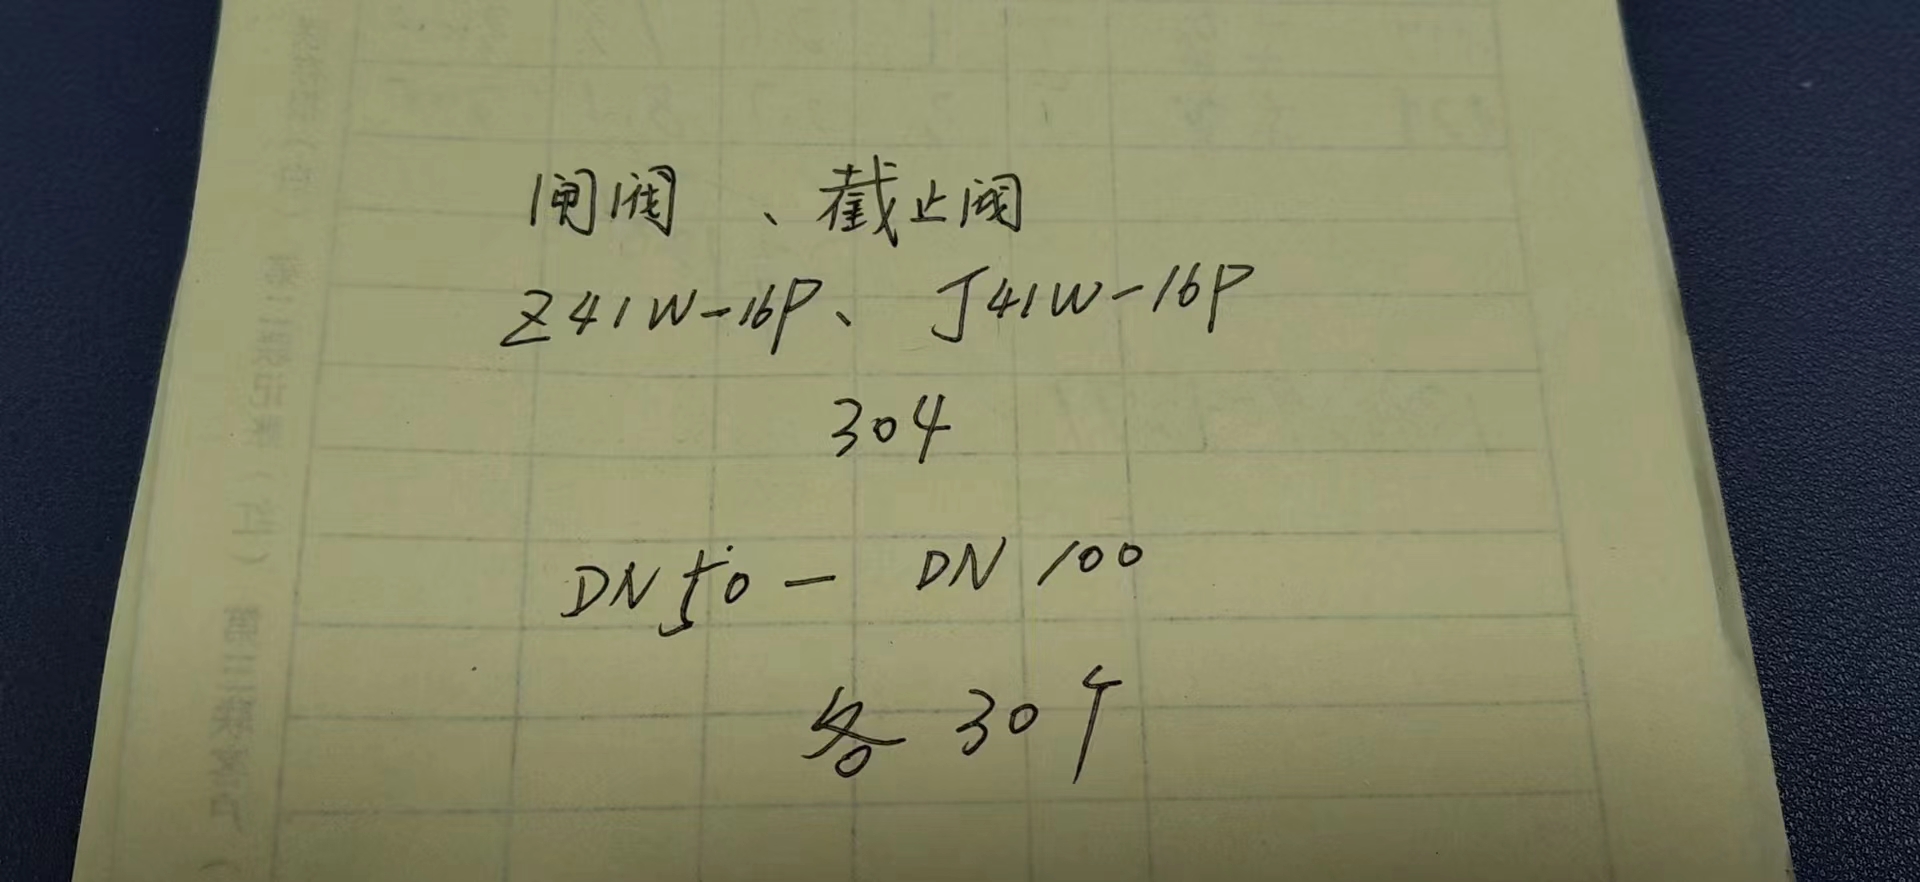 闸阀、截止阀
Z41W-16P、J41W-16P
304
DN50-DN100
各30个